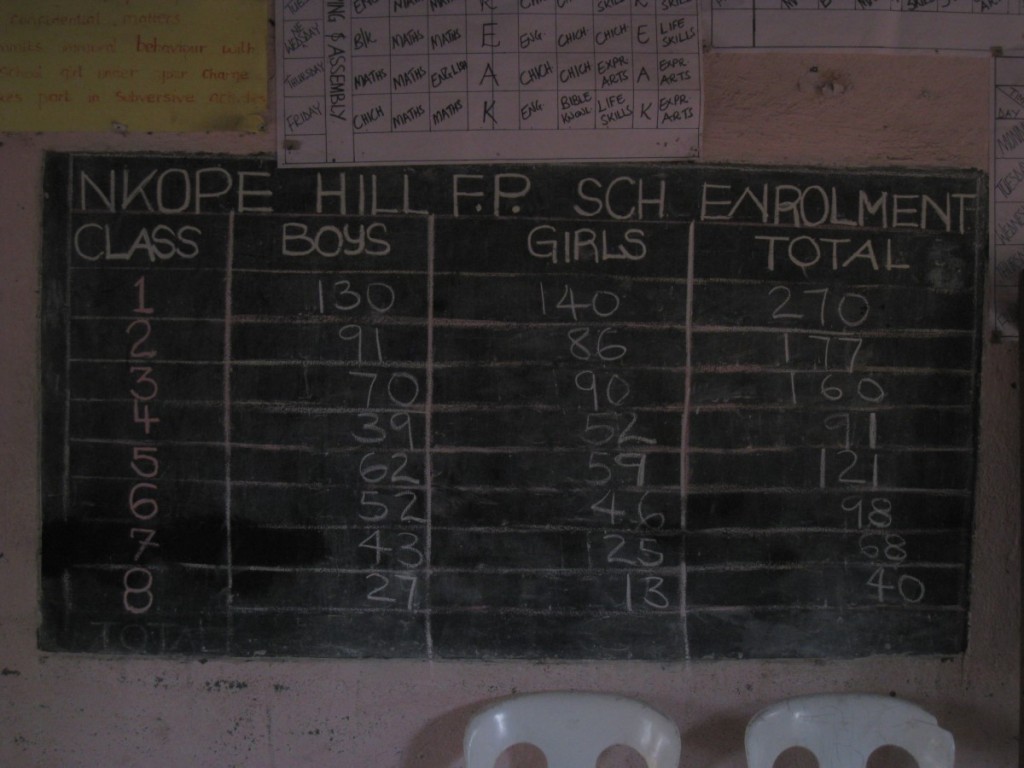 Confidential matters
behaviour with
school not under your charge
part in subversive
MATHS MATHS E ENG CHICH CHICH E LIFE SKILLS
BIK
THURSDAY MATHS MATHS ENGLISH A CHICH CHICH EXPR. ARTS A EXPR. ARTS
FRIDAY CHICH MATHS MATHS K ENG BIBLE KNOW. LIFE SKILLS K EXPR. ARTS
& ASSEMBLY
DAY
NKOPE HILL F.P. SCH ENROLMENT
CLASS BOYS GIRLS TOTAL
1 130 140 270
2 91 86 177
3 70 90 160
4 39 52 91
5 62 59 121
6 52 46 98
7 43 25 68
8 27 13 40
TOTAL